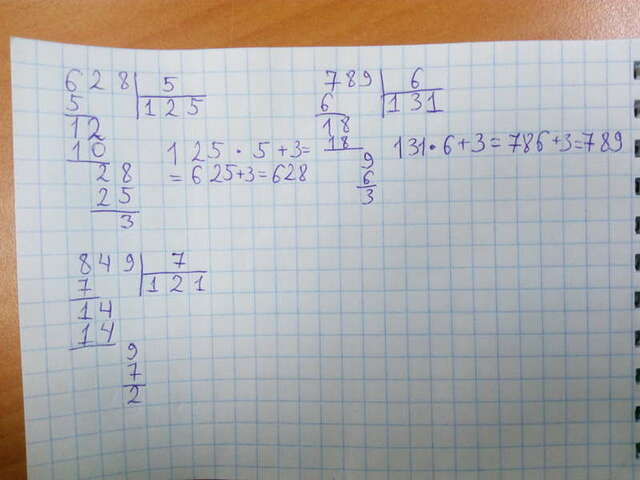 628 5
5 125
12
10
28
25
3
125 · 5 + 3 =
= 625 + 3 = 628
789 6
6 131
18
18
9
6
3
131 · 6 + 3 = 786 + 3 = 789
849 7
7 121
14
14
9
7
2